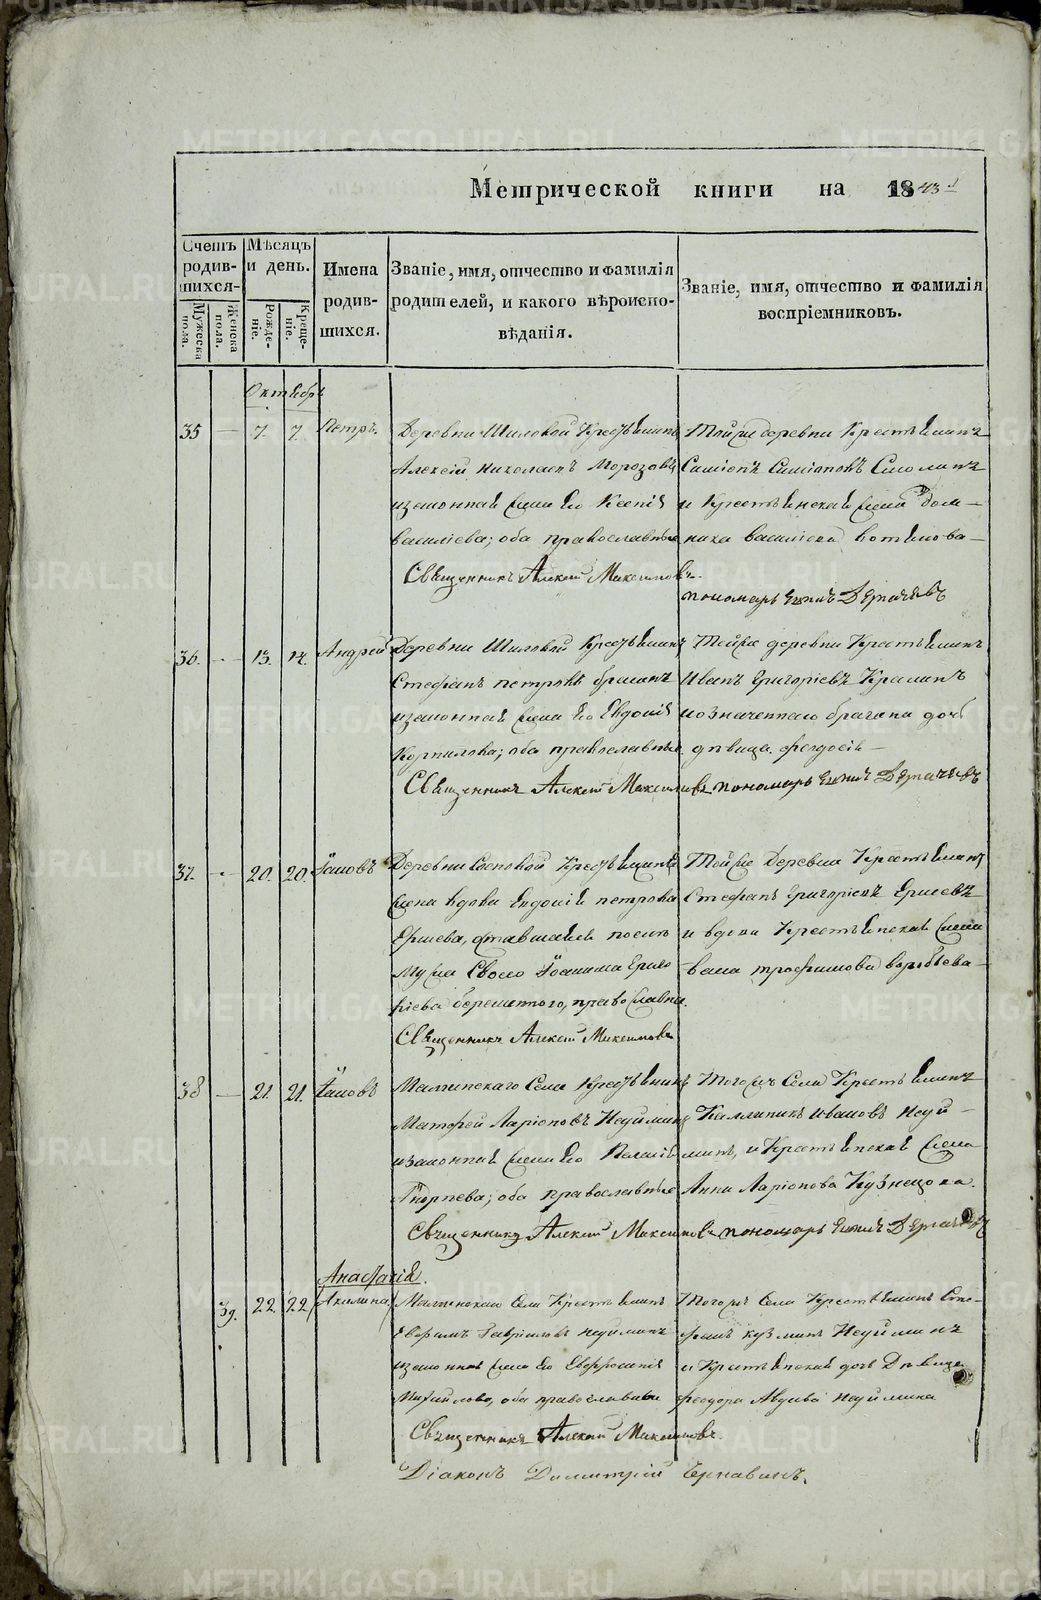 METRIKI.GASO-URAL.RU
Метрической книги на 1843 д
Счетъ родив-шихся-
Мужеска пола.
Женска пола.
Мѣсяцъ и день.
Рожде-ніе.
Креще-ніе.
Имена родив-шихся.
Званіе, имя, отчество и фамилія родителей, и какого вѣроиспо-вѣданія.
Званіе, имя, отчество и фамилія воспріемниковъ.
Октябрь
35 — 7. 7. Петръ.
Деревни Шиловой Крестьянинъ
Алексій Николаевъ Морозовъ
и законная жена его Ксенія
Васильева; оба православные
Священникъ Алексій Максимовъ
Той же деревни Крестьянинъ
Симіонъ Симіоновъ
и Крестьянская жена Дом-
ника Васильева
пономарь Дерпачевъ
36. — 13. 14. Андрей
Деревни Шиловой Крестьянинъ
Стефанъ Петровъ
и законная жена его Евдокія
Корнилова; оба православные
Священникъ Алексій Максимовъ
Той же деревни Крестьянинъ
Иванъ Григоріевъ
и означеннаго дочь
дѣвица Феодосія —
пономарь
37. — 20. 20. Іаковъ
Деревни Крестьянская
жена вдова Евдокія Петрова
Ершева, оставшаяся послѣ
мужа своего Іоакима Григо
ріева беременною, православна.
Священникъ Алексій Максимовъ
Той же Деревни Крестьянинъ
Стефанъ Григоріевъ Ершевъ
и вдова Крестьянская жена
Трофимова Воробьева —
38 — 21. 21. Іаковъ
Села Крестьянинъ
Матфей Ларіоновъ Неуйминъ
и законная жена его Пелагія
оба православные
Священникъ Алексій Максимовъ
Того жъ Села Крестьянинъ
Каллиникъ Ивановъ Неуй-
минъ, и Крестьянская жена
Анна Ларіонова Кузнецова.
пономарь
Анастасія.
39. 22. 22. (Акилина)
Села Крестьянинъ
Евфимъ Гавриловъ Неуйминъ
и законная жена его Евфросинія
Михайлова, оба православные
Священникъ Алексій Максимовъ.
Того жъ Села Крестьянинъ Сте-
фанъ Кузминъ Неуйминъ
и Крестьянская дочь Дѣвица
Феодора Неуймина
Діаконъ Димитрій Чернавинъ.